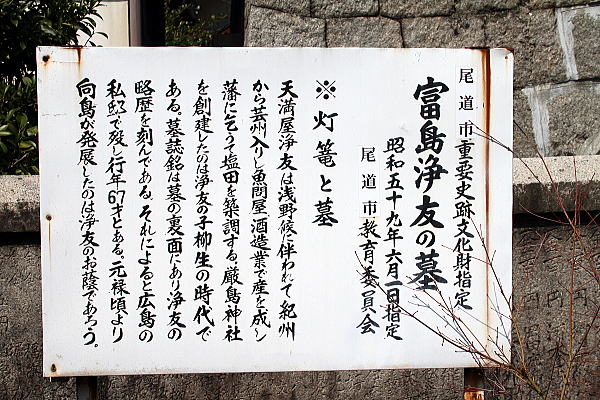 尾道市重要史跡文化財指定
富島浄友の墓
昭和五十九年六月一日指定
尾道市教育委員会
※灯篭と墓
天満屋浄友は浅野候に伴われて紀州
から芸州入りし魚問屋、酒造業で産を成し
藩に乞うて塩田を築調する。厳島神社
を創建したのは浄友の子柳生の時代で
ある。墓誌銘は墓の裏面にあり浄友の
略歴を刻んである。それによると広島の
私邸で残し行年67才とある。元禄頃より
向島が発展したのは浄友のお蔭であろう。